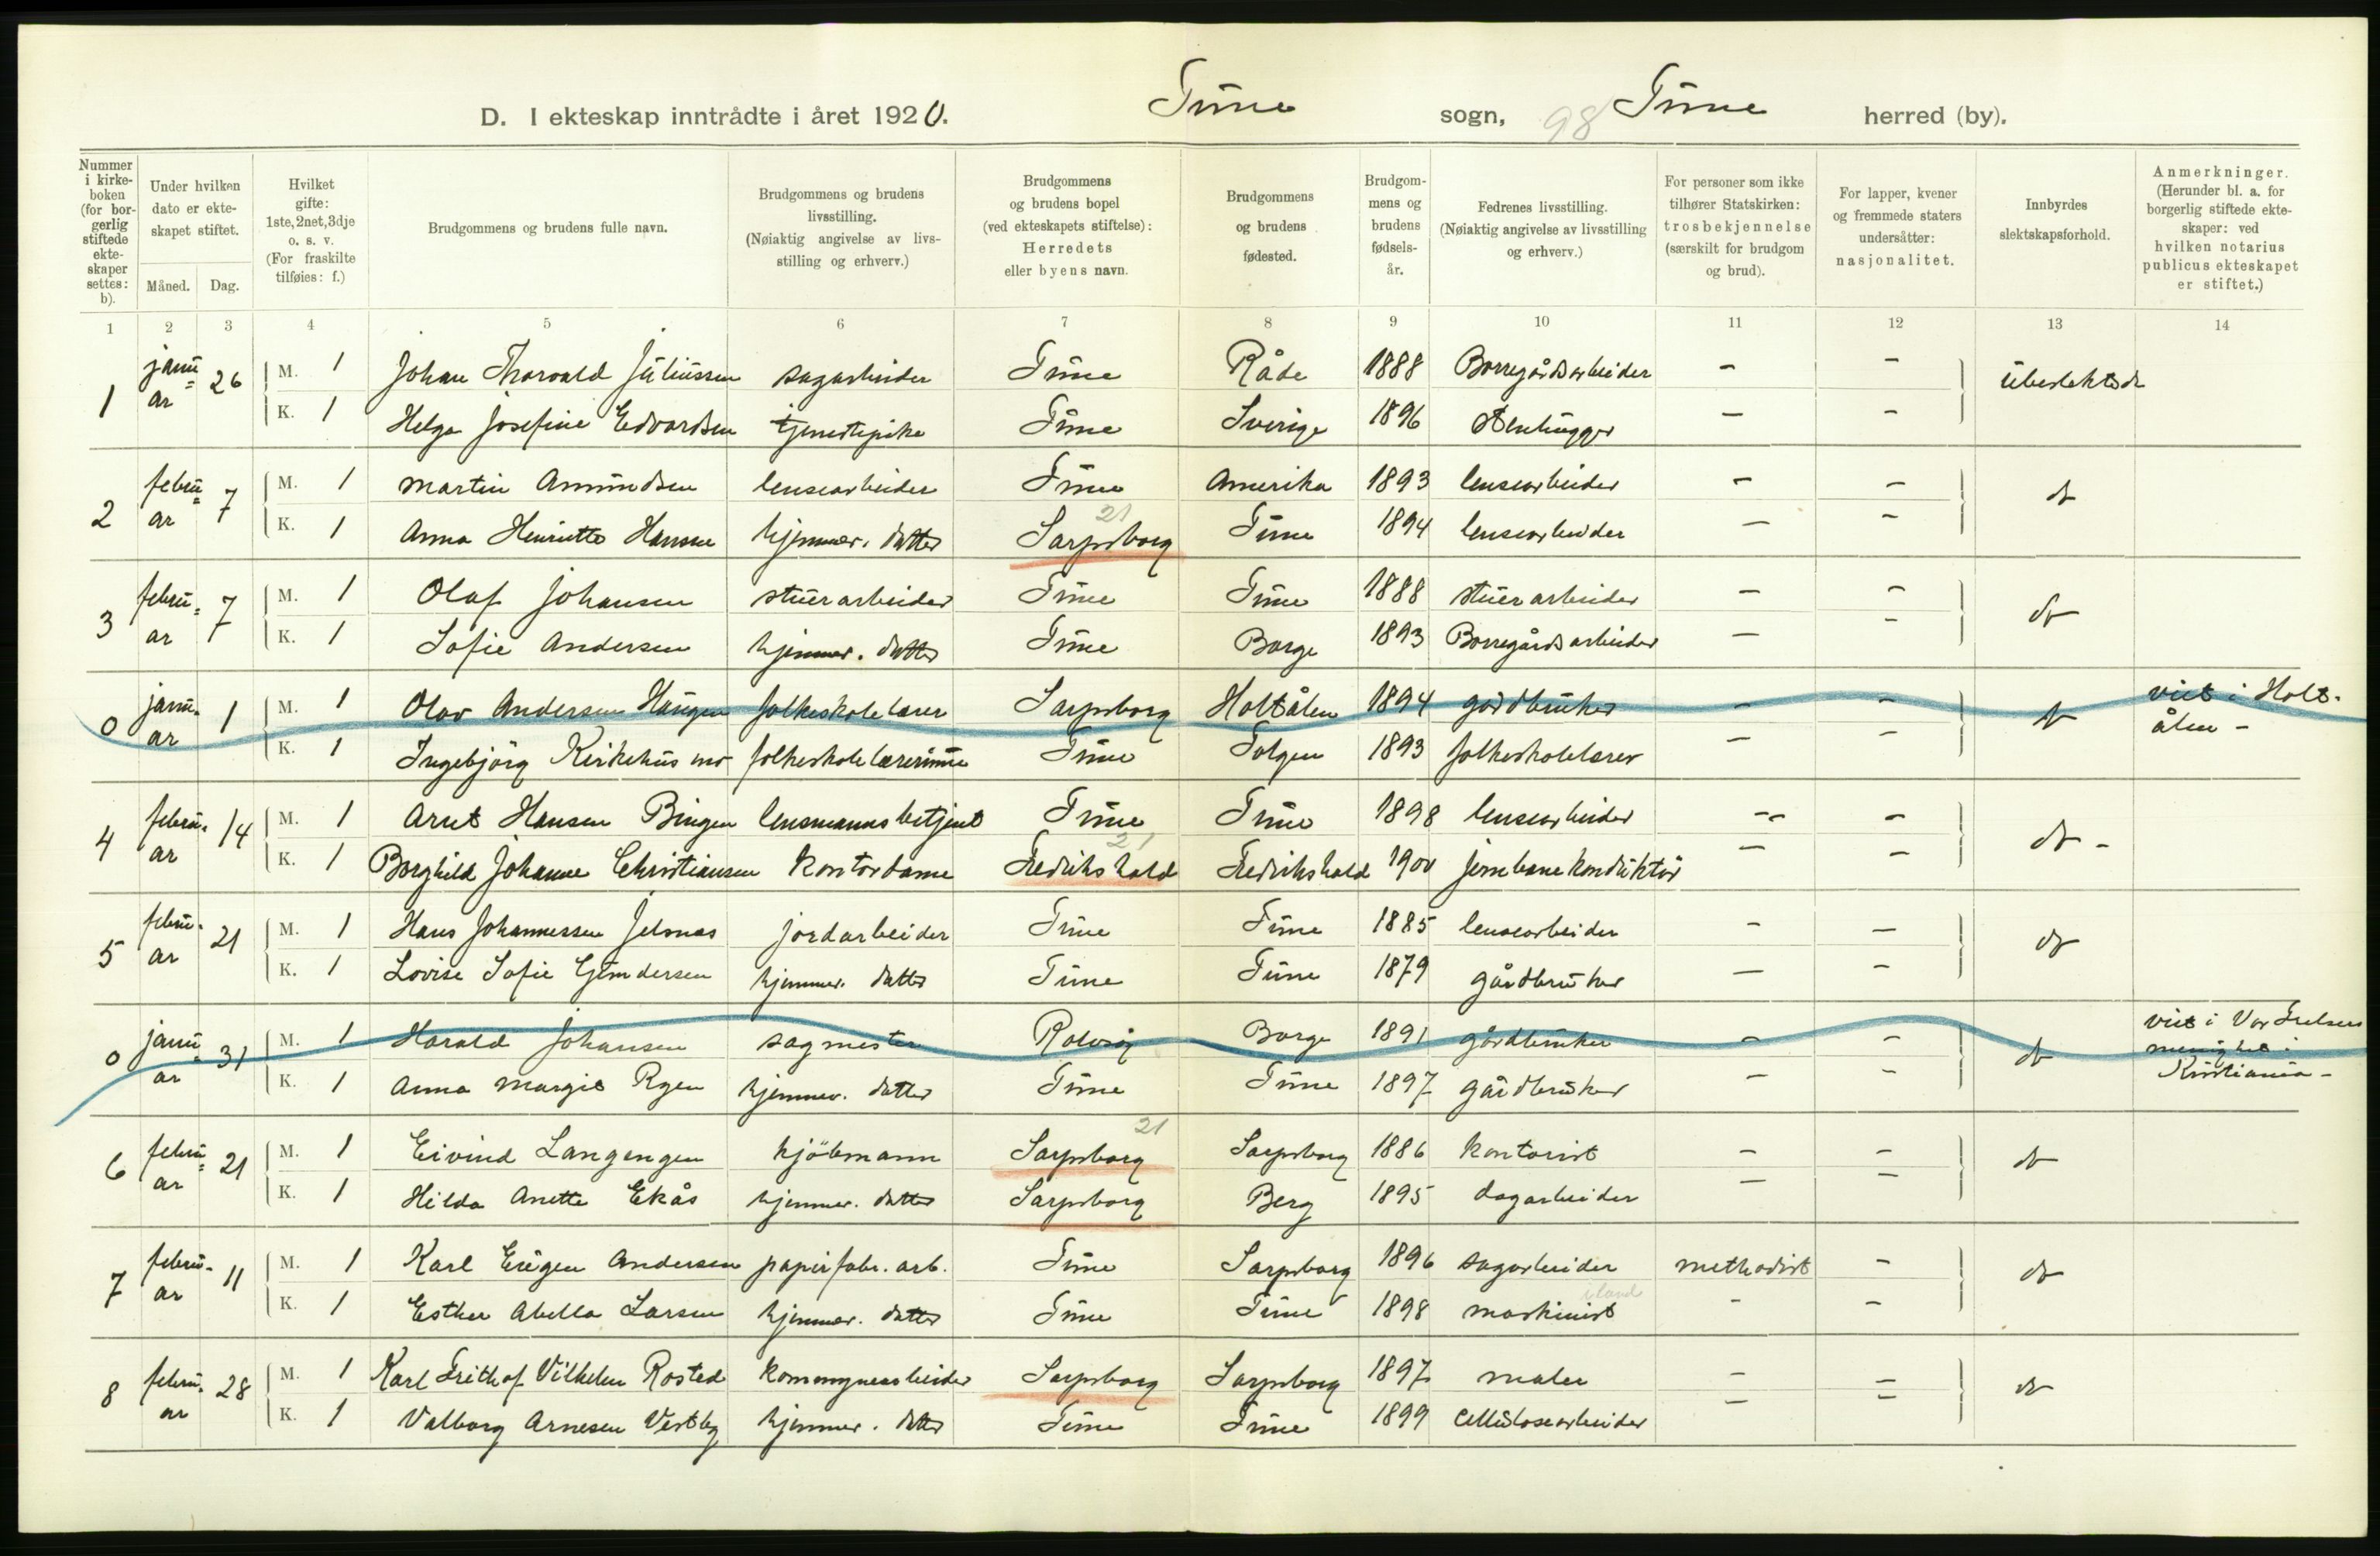 D. I ekteskap inntrådte i året 1920. Tune sogn, 98 Tune herred (by).
Nummer i kirke-boken (for bor-gerlig stiftede ekte-skaper settes: b).
Under hvilken dato er ekte-skapet stiftet.
Måned. Dag.
Hvilket gifte: 1ste, 2net, 3dje o. s. v. (For fraskilte tilføies: f.)
Brudgommens og brudens fulle navn.
Brudgommens og brudens livsstilling. (Nøiaktig angivelse av livs-stilling og erhverv.)
Brudgommens og brudens bopel (ved ekteskapets stiftelse): Herredets eller byens navn.
Brudgommens og brudens fødested.
Brudgom-mens og brudens fødsels-år.
Fedrenes livsstilling. (Nøiaktig angivelse av livsstilling og erhverv.)
For personer som ikke tilhører Statskirken: trosbekjennelse (særskilt for brudgom og brud).
For lapper, kvener og fremmede staters undersåtter: nasjonalitet.
Innbyrdes slektskapsforhold.
Anmerkninger. (Herunder bl. a. for borgerlig stiftede ekte-skaper: ved hvilken notarius publicus ekteskapet er stiftet.)
1 2 3 4 5 6 7 8 9 10 11 12 13 14
1 janu=ar 26 M. 1 Johan Thorvald Juliussen sagarbeider Tune Råde 1888 Borregårdsarbeider - - ubeslektede
K. 1 Helga Josefine Edvardsen tjenestepike Tune Sverige 1896 Stenhugger - -
2 febru=ar 7 M. 1 Martin Amundsen lensearbeider Tune Amerika 1893 lensearbeider - - do
K. 1 Anna Henriette Hansen hjemmev. datter Sarpsborg 21 Tune 1894 lensearbeider - -
3 febru=ar 7 M. 1 Olaf Johansen stuerarbeider Tune Tune 1888 stuerarbeider - - do
K. 1 Sofie Andersen hjemmev. datter Tune Borge 1893 Borregårdsarbeider - -
0 janu-ar 1 M. 1 Olav Andersen Haugen folkeskolelærer Sarpsborg Holtålen 1894 gårdbruker - - do viet i Holt-
K. 1 Ingebjörg Kirkehus mo folkeskolelærerinne Tune Tolgen 1893 folkeskolelærer - - ålen -
4 febru-ar 14 M. 1 Arnt Hansen Bingen lensmannsbetjent Tune Tune 1898 lensearbeider -- - do -
K. 1 Borghild Johanne Christiansen kontordame Fredrikshald 21 Fredrikshald 1900 jernbanekonduktör - -
5 febru-ar 21 M. 1 Hans Johannessen Jelsnas jordarbeider Tune Tune 1885 lensearbeider - - do
K. 1 Lovise Sofie Gundersen hjemmev. datter Tune Tune 1879 gårdbruker - -
0 janu=ar 31 M. 1 Harald Johansen sagmester Rolvsöy Borge 1891 gårdbruker - - do viet i Vor Frelsers
menighet i
K. 1 Anna Margit Rgen hjemmev. datter Tune Tune 1897 gårdbruker - - Kristiania -
6 febru=ar 21 M. 1 Eivind Langengen kjöbmann Sarpsborg 21 Sarpsborg 1886 kontorist - - do
K. 1 Hilda Anette Ekås hjemmev. datter Sarpsborg Berg 1895 dagarbeider - -
7 febru-ar 11 M. 1 Karl Eugen Andersen papirfabr. arb. Tune Sarpsborg 1896 sagarbeider methodist - do
K. 1 Esther Abella Larsen hjemmev. datter Tune Tune 1898 maskinist i land - -
8 febru-ar 28 M. 1 Karl Frithof Vilhelm Rostad kommunearbeider Sarpsborg Sarpsborg 1897 maler - - do
K. 1 Valborg Arnesen Vestby hjemmev. datter Tune Tune 1899 cellulosearbeider - -